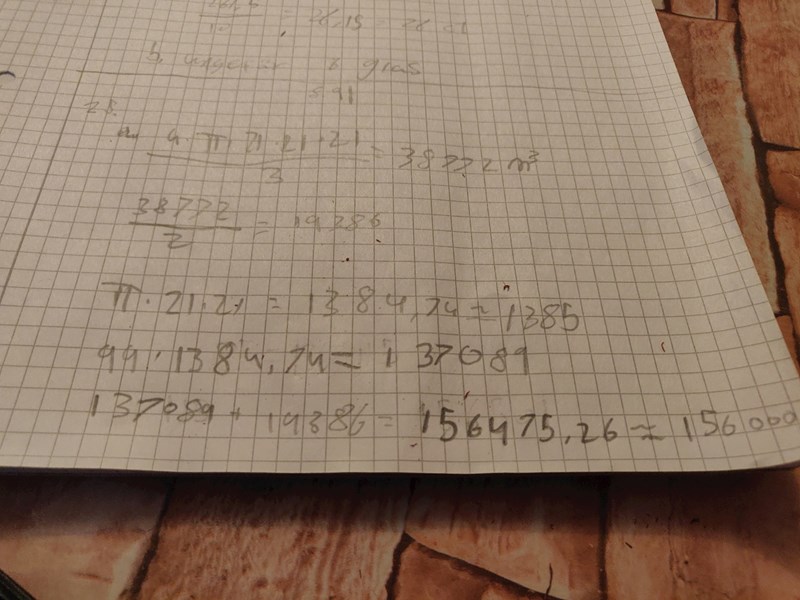 = 26,15 = 26
25.
a. 4·π·21·21·21 / 3 = 38772 m³
38772 / 2 = 19386
π·21·21 = 1384,74 ≈ 1385
99·1384,74 = 137089
137089 + 19386 = 156475,26 ≈ 156000